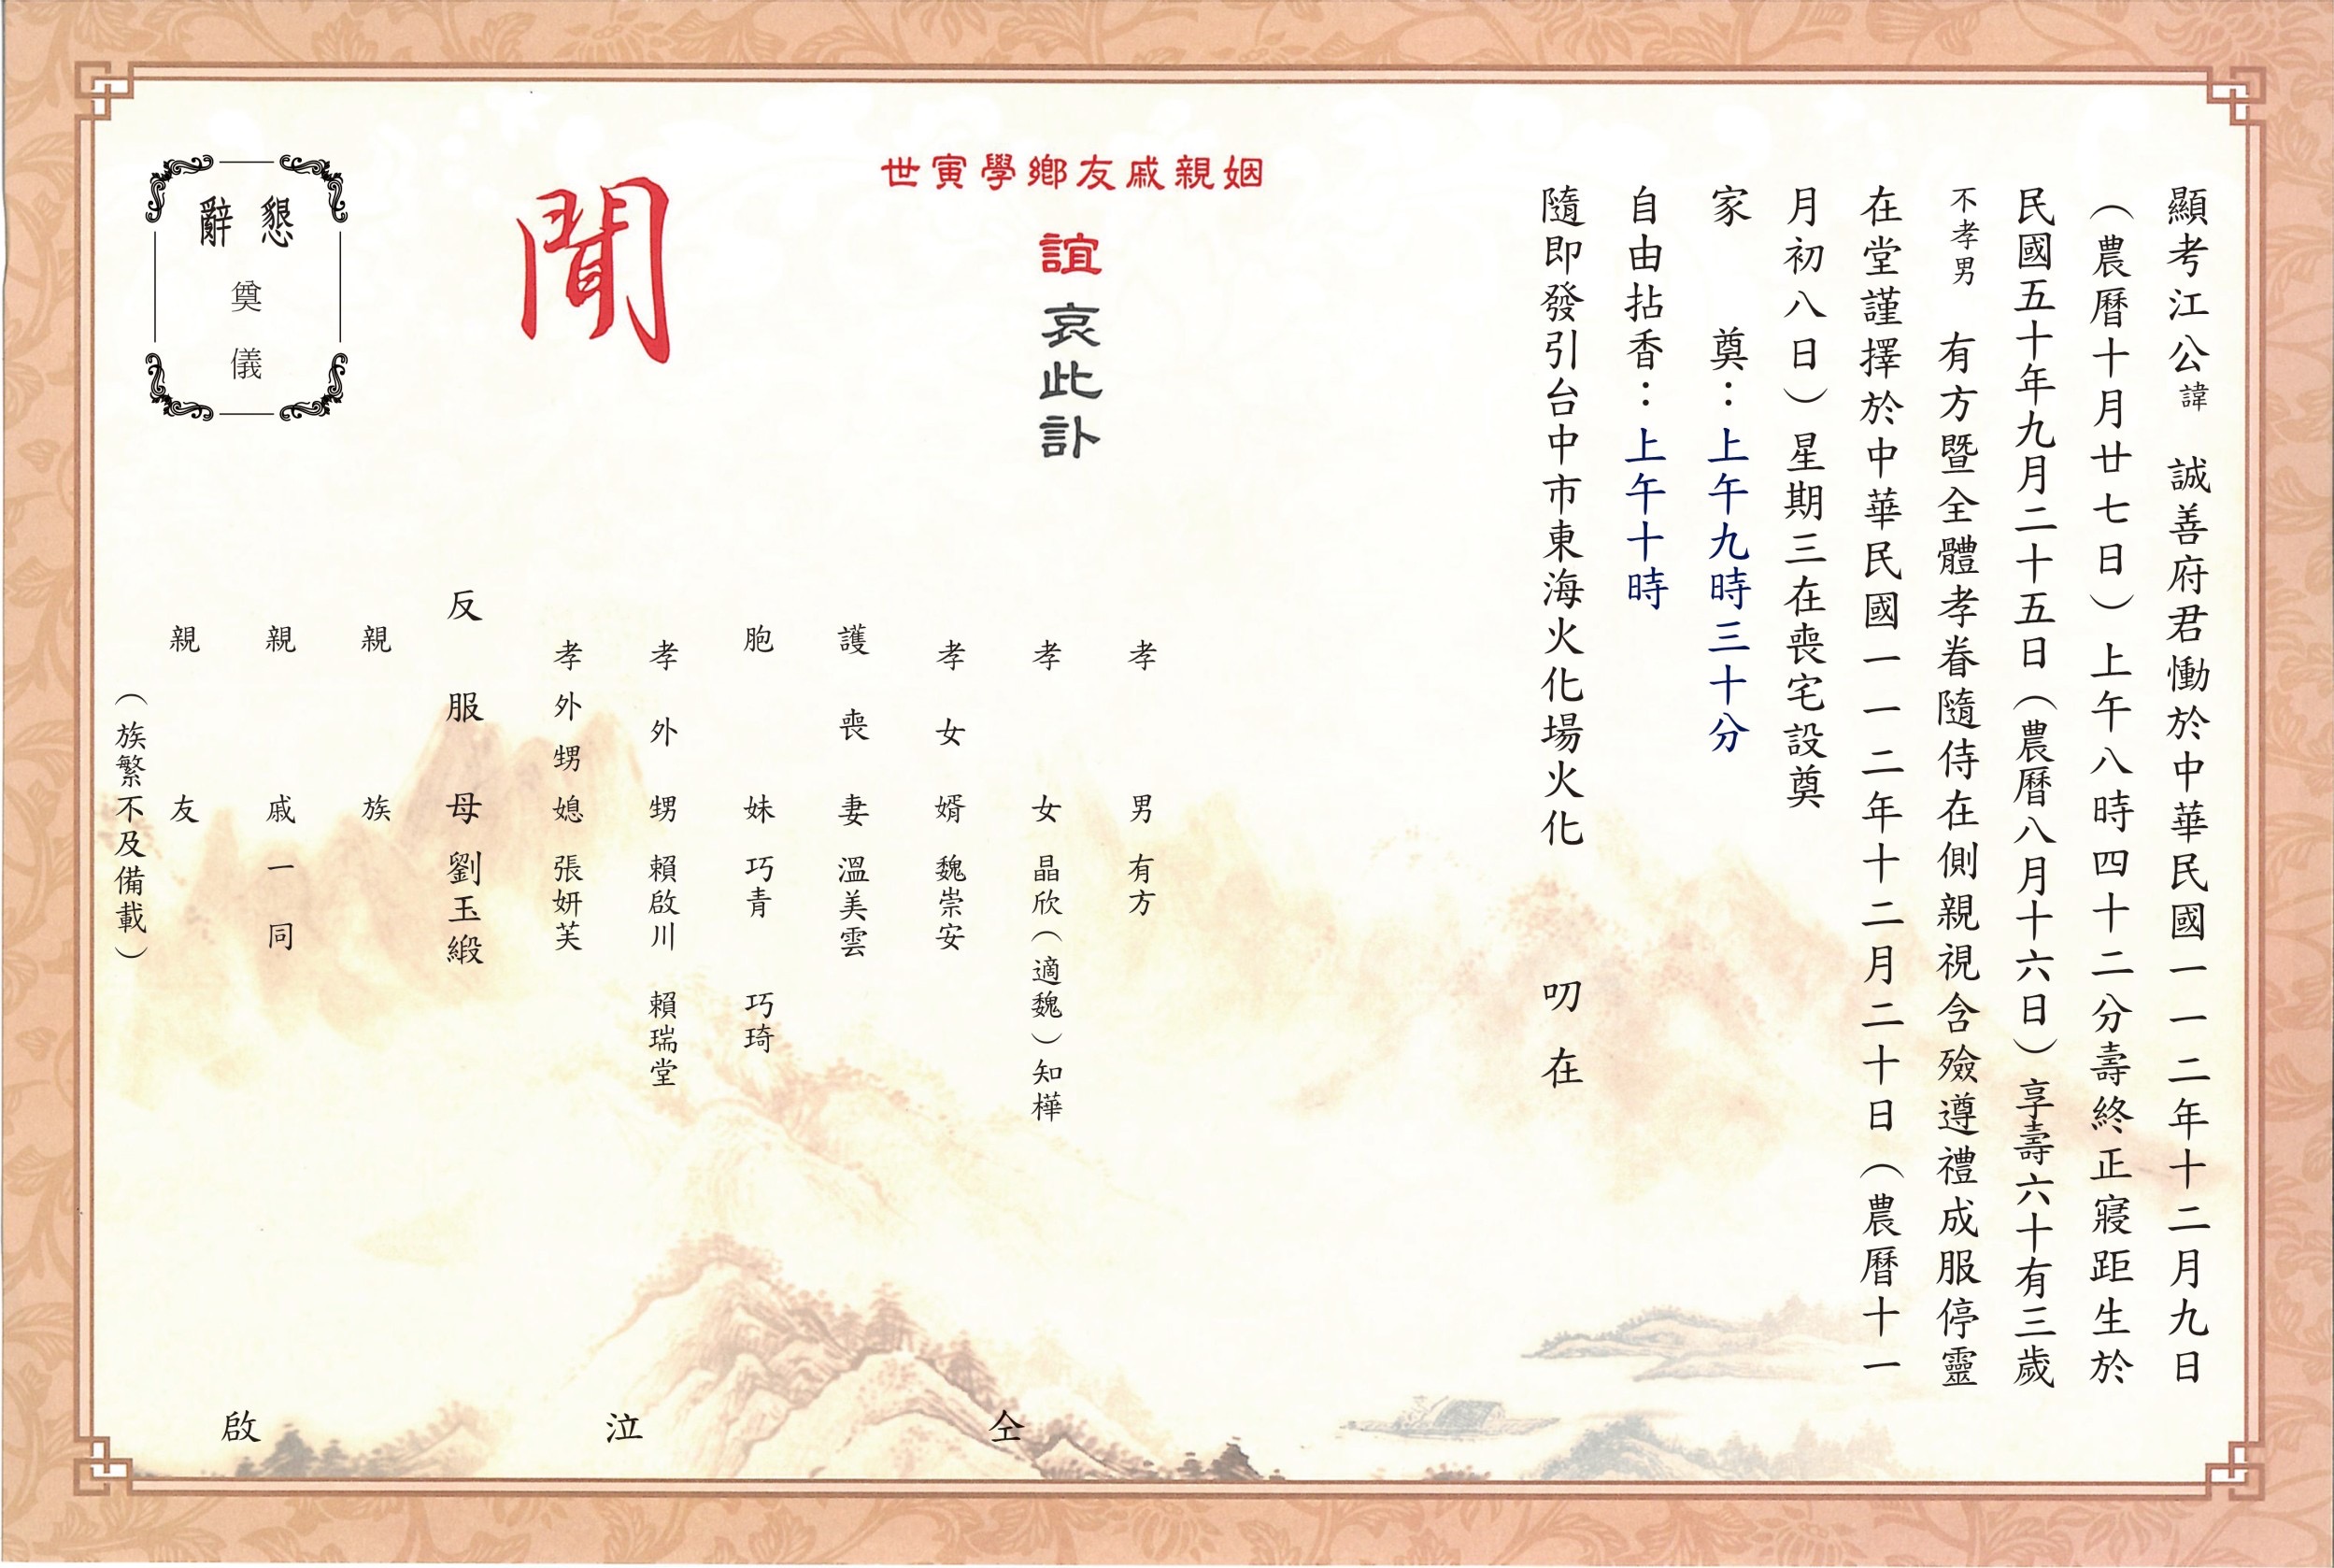 顯考江公諱　誠善府君慟於中華民國一一二年十二月九日
（農曆十月廿七日）上午八時四十二分壽終正寢距生於
民國五十年九月二十五日（農曆八月十六日）享壽六十有三歲
不孝男　有方暨全體孝眷隨侍在側親視含殮遵禮成服停靈
在堂謹擇於中華民國一一二年十二月二十日（農曆十一
月初八日）星期三在喪宅設奠
家　奠：上午九時三十分
自由拈香：上午十時
隨即發引台中市東海火化場火化　叨在
姻親戚友鄉學寅世
誼哀此訃
聞
孝男有方
孝女晶欣（適魏）知樺
孝女婿魏崇安
護喪妻溫美雲
胞妹巧青　巧琦
孝外甥賴啟川　賴瑞堂
孝外甥媳張妍芙
反服母劉玉緞
親族
親戚一同
親友
（族繁不及備載）
仝　泣　啟
懇辭
奠儀